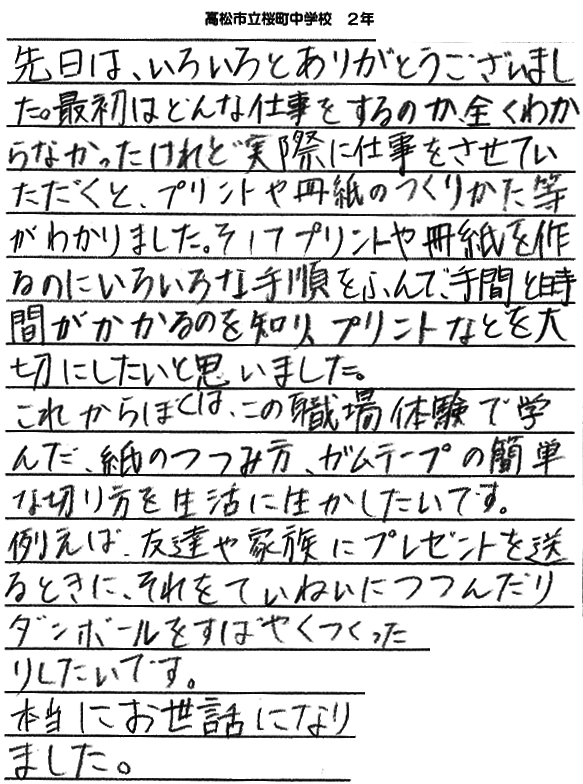 高松市立桜町中学校　2年
先日は、いろいろとありがとうございまし
た。最初はどんな仕事をするのか、全くわか
らなかったけれど実際に仕事をさせてい
ただくと、プリントや冊紙のつくりかた等
がわかりました。そしてプリントや冊紙を作
るのにいろいろな手順をふんで、手間と時
間がかかるのを知り、プリントなどを大
切にしたいと思いました。
これからぼくは、この職場体験で学
んだ、紙のつつみ方、ガムテープの簡単
な切り方を生活に生かしたいです。
例えば、友達や家族にプレゼントを送
るときに、それをていねいにつつんだり
ダンボールをすばやくつくった
りしたいです。
本当にお世話になり
ました。